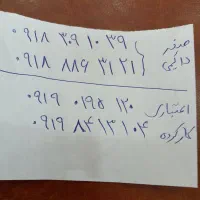 ۰۹۱۸ ۳۰۹ ۱۰ ۳۹ صفر
۰۹۱۸ ۸۸۶ ۳۱ ۲۱ دائمی
۰۹۱۹ ۰۱۹۵ ۱۲۰ اعتباری
۰۹۱۹ ۸۴ ۱۳ ۱۰۴ کارکرده